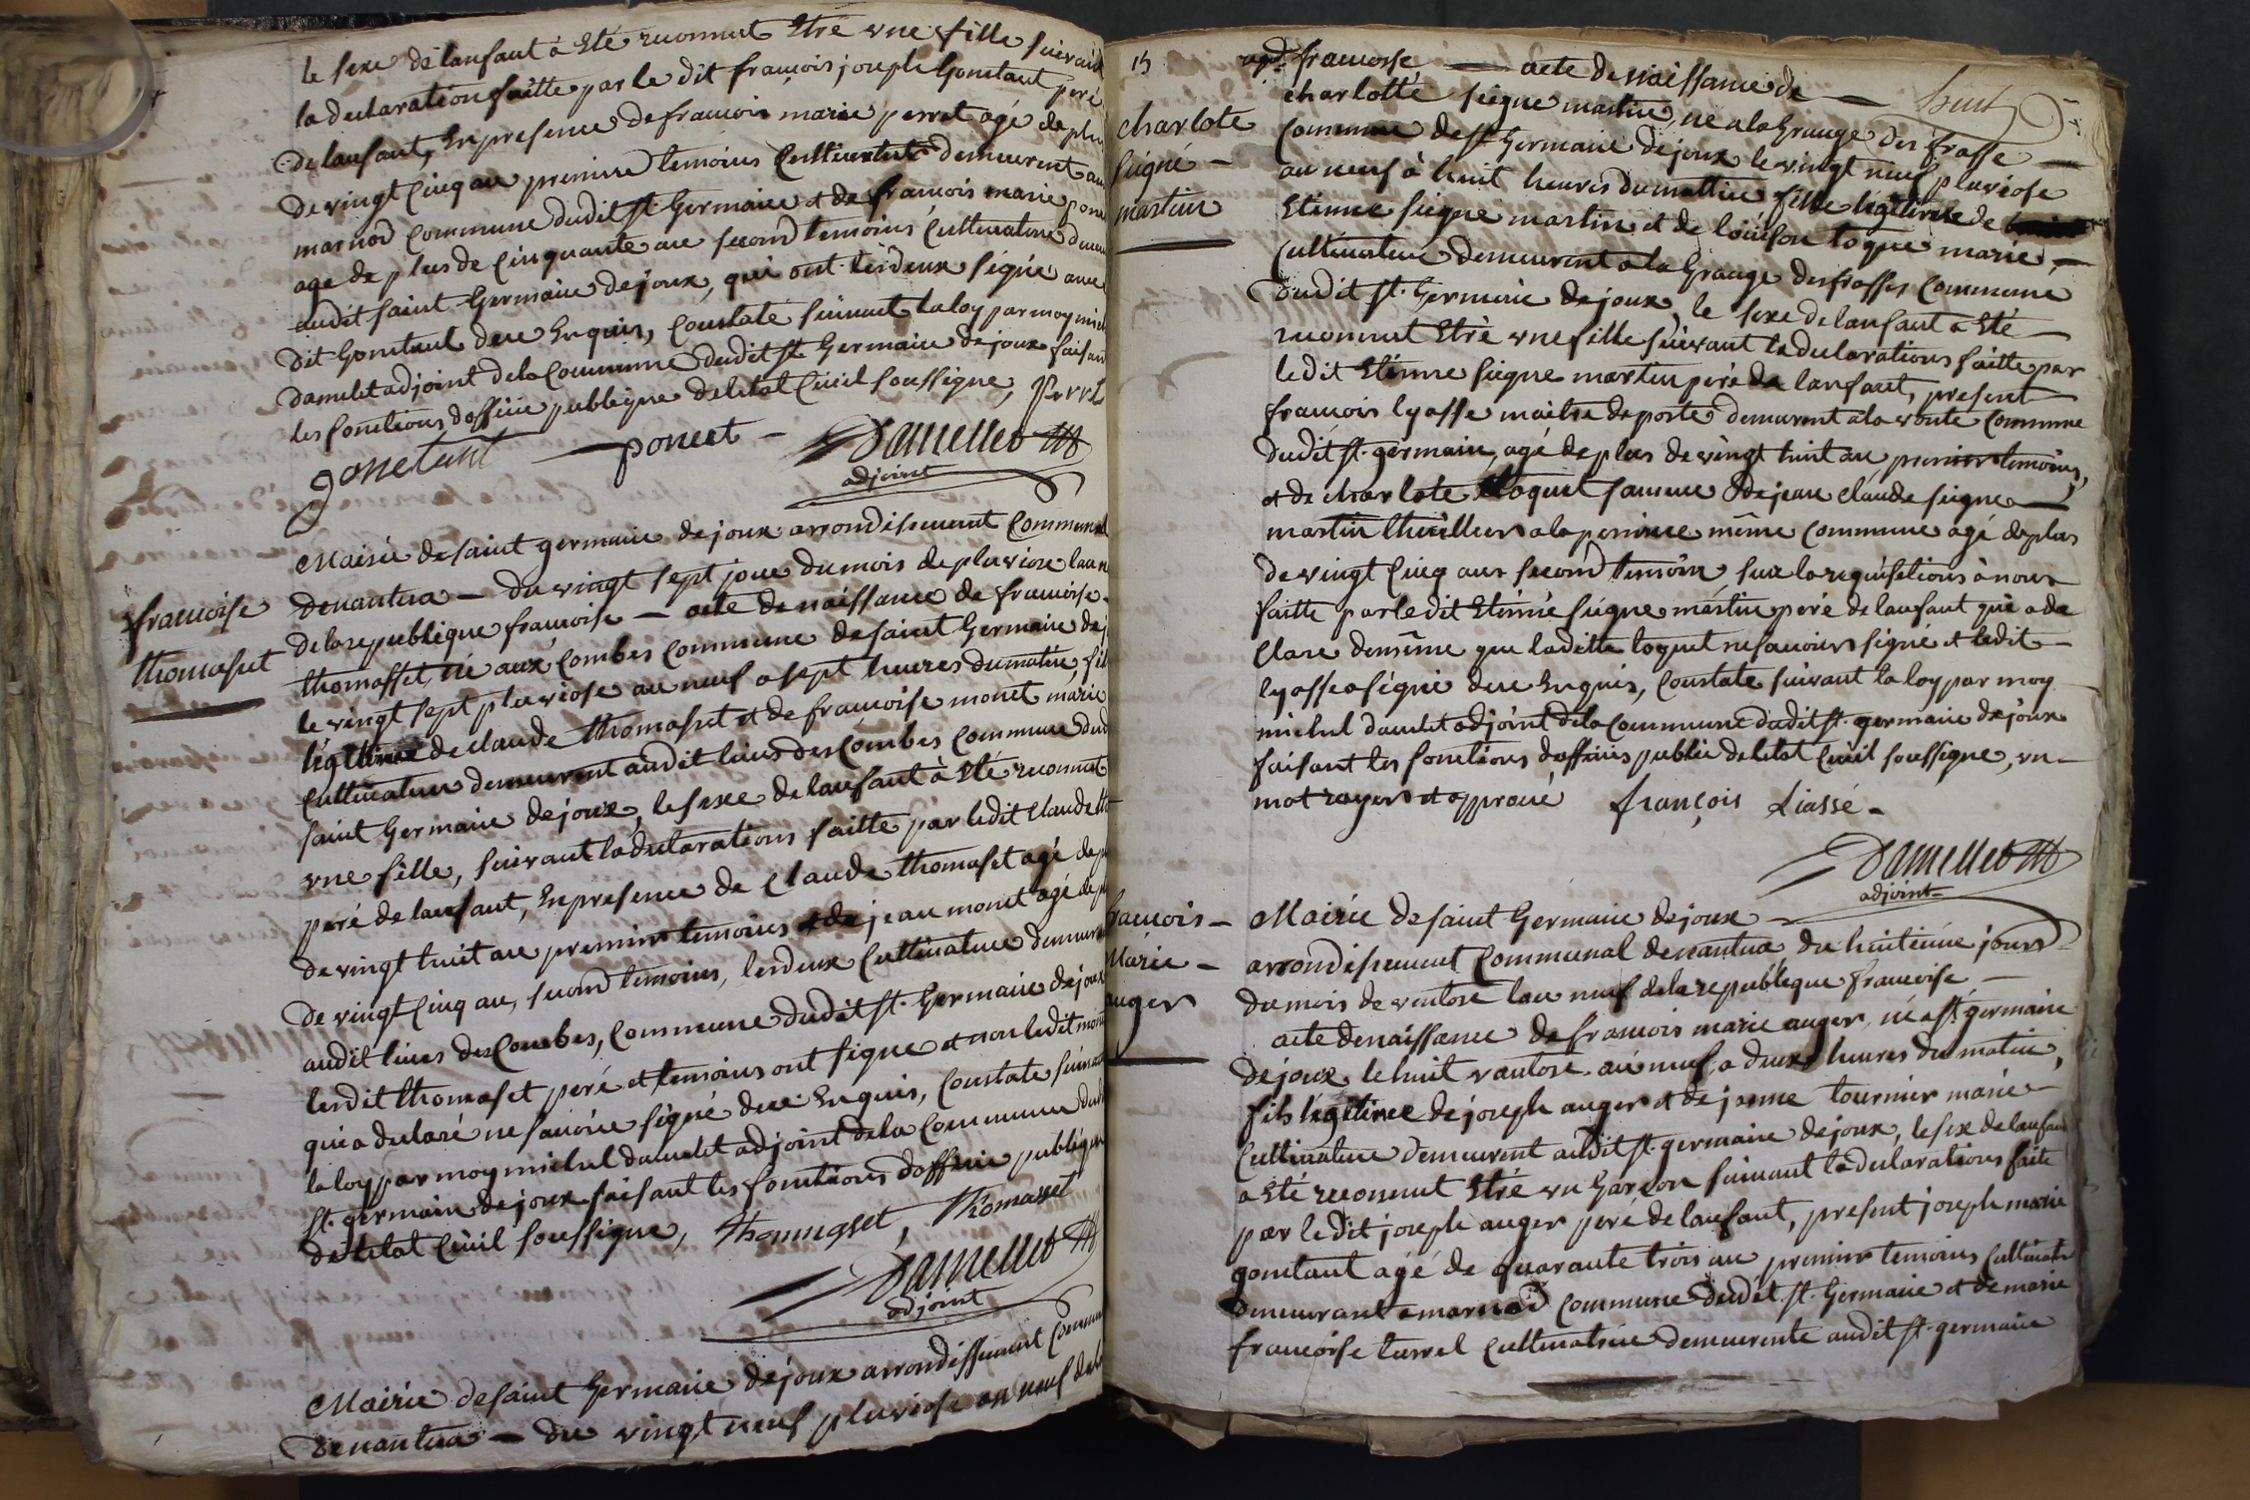 le sexe de lanfant à Eté reconnut Etre une fille suivant
la declaration faitte par le dit francois joseph Gonetant peré
de lanfant, En presence de francois marie perret agé de plu
de vingt Cinq an premier temoins Cultivateur demeurent au
marnod Commune dudit St Germain et de francois marie ponc
age de plus de Cinquante an second temoins Cultivateur demeu
audit saint Germain dejoux, qui ont lesdeux signé avec
dit Gonetant dece Enquis, Constate suivant la loy par moy mich
damelet adjoint dela Commune dudit St Germain dejoux faisan
les fonctions doffice publique deletat Civil soussigne, Perret
gonetant — poncet — Damellet
adjoint
Mairie desaint germain dejoux arrondisement Communal
francoise
thomaset
denantua — du vingt sept jour du mois de pluviose lan n
delarepublique francoise — acte de naissance de francoise
thomasset, né aux Combes Commune desaint Germain dej
le vingt sept pluviose an neuf a sept heures dumatin, fil
légitime de claude thomaset et de francoise monet marié
Cultivateur demeurent audit lieux des Combes Commune dud
saint Germain dejoux, le sexe de lanfant à Eté reconnut
une fille, suivant la declarations faitte par ledit Claude th
peré de lanfant, En presence de Claude thomaset agé de p
de vingt huit an premier temoins et de jean monet agé de p
de vingt Cinq an, second temoins, lesdeux Cultivateur demeure
audit lieux des Combes, Commune dudit St Germain dejoux
lesdit thomaset peré et temoins ont signe et non ledit mone
qui a declaré ne savoir signé dece Enquis, Constate suivant
la loy par moy michel damelet adjoint dela Commune dud
St germain dejoux faisant les fonctions doffice publique
deletat Civil soussigne, thommasset, Thomasset
Damellet
adjoint
Mairie desaint Germain dejoux arrondissement Commu
denantua — du vingt neuf pluviose an neuf dela
15
rep. francoise, — acte denaissance de —
huit
charlote
seigné —
martin
charlotte seigne martin, né a la Grange des frasse —
Commune de St Germain dejoux le vingt neuf pluviose
an neuf à huit heures dumattin fille légitime de
Etienne seigne martin et de loüison toque marié —
Cultivateur demeurent a la Grange desfrasses Commune
dudit St Germain dejoux, le sexe de lanfant a Eté —
reconnut Etré une fille suivant la declarations faitte par
ledit Etienne seigne martin peré de lanfant, present
francois lyasse maitre deposte demeurent a la voute Commune
dudit St germain, agé de plus de vingt huit an premier temoins,
et de charlote toquet famme de jean claude seigne —
martin thuillier a la perriere même Commune agé de plus
de vingt Cinq ans second temoin, sur la requisitions à nous
faitte par le dit Etienne seigne martin peré de lanfant qui a de
clare demême que ladite toquet nesavoir signé et ledit —
lyasse a signé dece Enquis, Constate suivant la loy par moy
michel damelet adjoint dela Commune dudit St germain dejoux
faisant les fonctions doffices public deletat Civil soussigne, un
mot rayer et approuvé françois Liassé —
Damellet
adjoint
francois —
Marie —
auger
Mairie desaint Germain dejoux —
arrondisement Communal denantua, du huitieme jour
dumois de ventose lan neuf dela republique francoise —
acte denaissance de francois marie auger, né a St germain
dejoux le huit vantose an neuf a deux heures du matin,
fils légitime de joseph auger et de jeanne tournier marié —
Cultivateur demeurent audit St germain dejoux, le sexe de lanfan
a Eté reconnut Etré un Garçon suivant la declarations faite
par le dit joseph auger peré de lanfant, present joseph marie
gonetant agé de quarante trois an premier temoins Cultivate
demeurant a marnod Commune dudit St Germain et de marie
francoise turrel Cultivatrice demeurente audit St germain